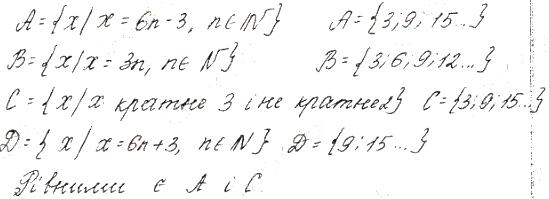 A={x/x=6n-3, n∈N} A={3;9;15...}
B={x/x=3n, n∈N} B={3;6;9;12...}
C={x/x кратне 3 і не кратне2} C={3;9;15...}
D={x/x=6n+3, n∈N} D={9;15...}
Рівними є A і C.